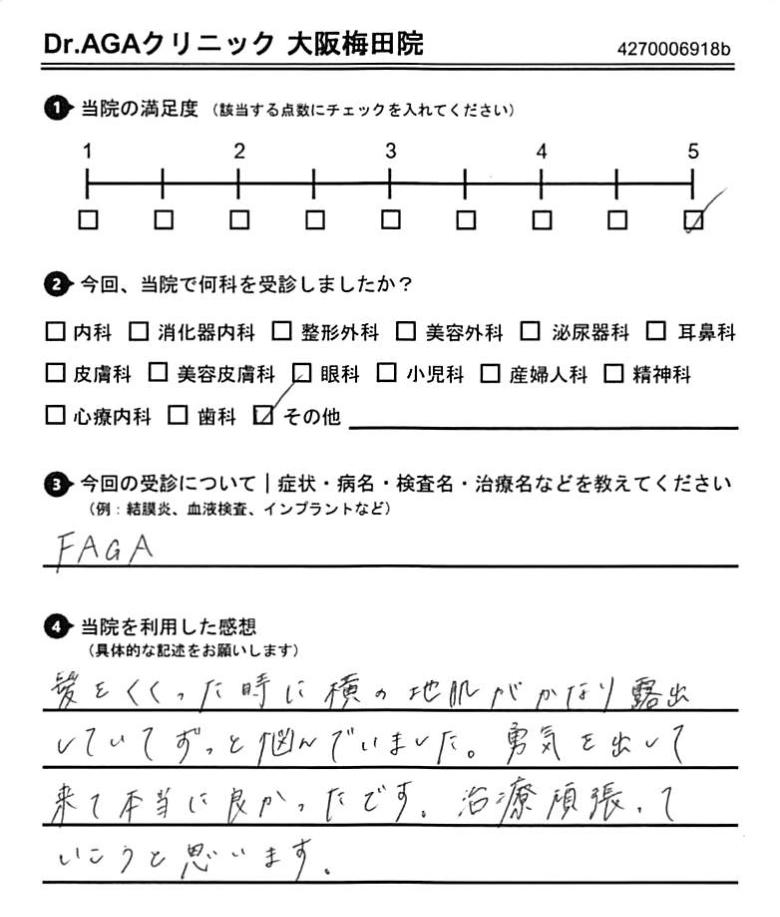 Dr.AGAクリニック 大阪梅田院 4270006918b
1 当院の満足度 （該当する点数にチェックを入れてください）
1 2 3 4 5
2 今回、当院で何科を受診しましたか？
□ 内科 □ 消化器内科 □ 整形外科 □ 美容外科 □ 泌尿器科 □ 耳鼻科
□ 皮膚科 □ 美容皮膚科 □ 眼科 □ 小児科 □ 産婦人科 □ 精神科
□ 心療内科 □ 歯科 ☑ その他
3 今回の受診について｜症状・病名・検査名・治療名などを教えてください
（例：結膜炎、血液検査、インプラントなど）
FAGA
4 当院を利用した感想
（具体的な記述をお願いします）
髪をくくった時に横の地肌がかなり露出
していてずっと悩んでいました。勇気を出して
来て本当に良かったです。治療頑張って
いこうと思います。